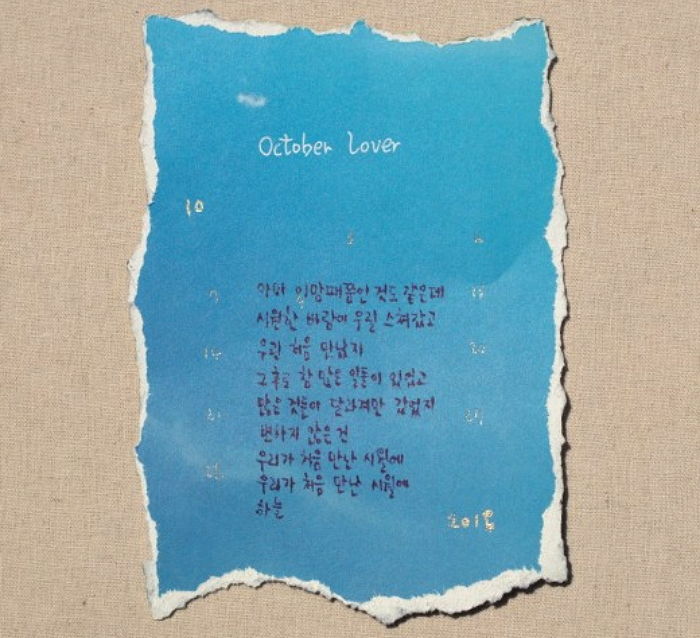 October Lover
10
아마 이맘때쯤인 것도 같은데
시원한 바람이 우릴 스쳐갔고
우린 처음 만났지
그후로 참 많은 일들이 있었고
많은 것들이 달라져만 갔었지
변하지 않은 건
우리가 처음 만난 시월에
우리가 처음 만난 시월에
하늘
2018